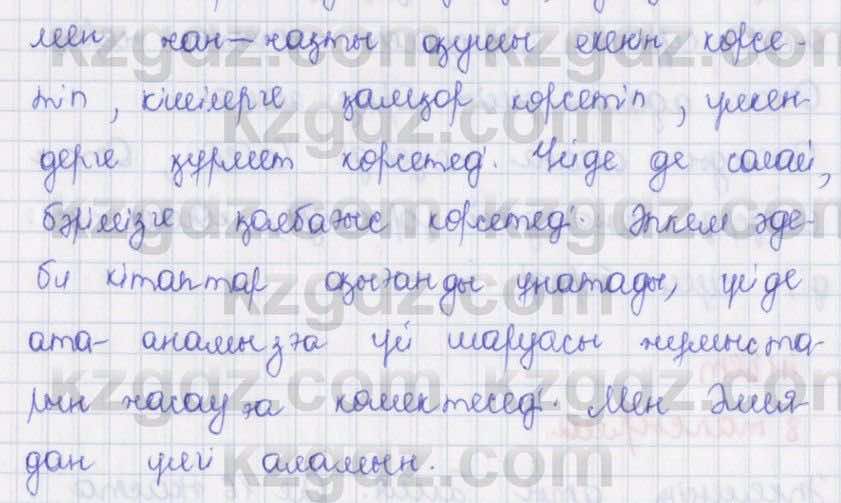 мен жан-жақты оқушы екенін көрсе-
тіп, кішілерге қамқор көрсетіп, үлкен-
дерге құрмет көрсетеді. Үйде де солай,
бәрімізге қамқорлық көрсетеді. Әпкем әде-
би кітаптар оқығанды ұнатады, үйде
ата-анамызға үй шаруасы жұмыста-
рын жасауға көмектеседі. Мен Әлия-
дан үлгі аламын.
kzgdz.com